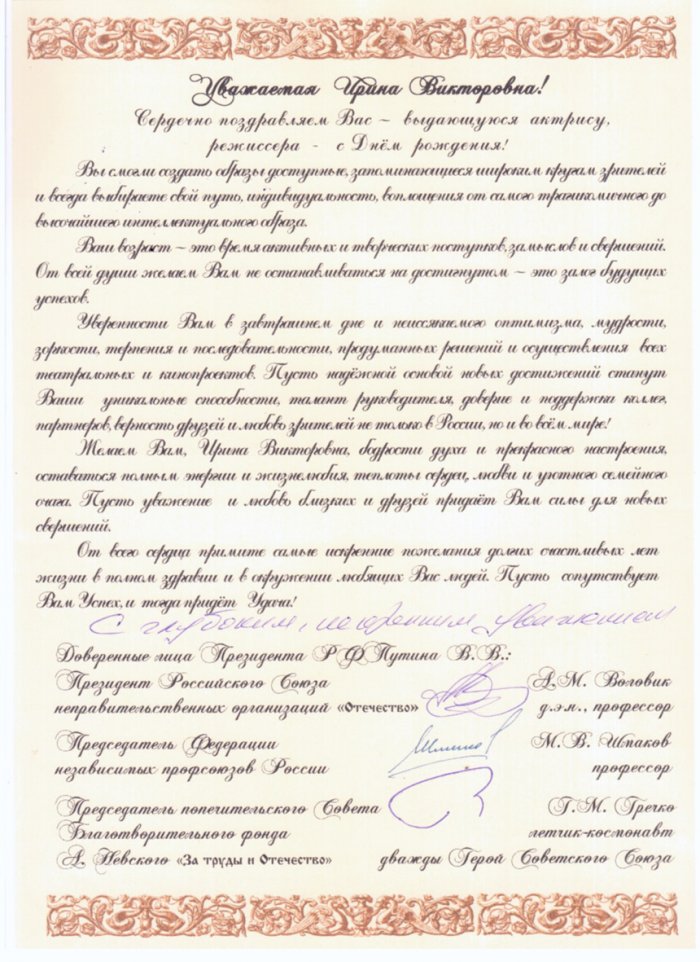 Уважаемая Ирина Викторовна!
Сердечно поздравляем Вас – выдающуюся актрису,
режиссера - с Днём рождения!
Вы смогли создать образы доступные, запоминающиеся широким кругам зрителей
и всегда выбираете свой путь, индивидуальность, воплощения от самого трагикомичного до
высочайшего интеллектуального образа.
Ваш возраст – это время активных и творческих поступков, замыслов и свершений.
От всей души желаем Вам не останавливаться на достигнутом – это залог будущих
успехов.
Уверенности Вам в завтрашнем дне и неиссякаемого оптимизма, мудрости,
зоркости, терпения и последовательности, продуманных решений и осуществления всех
театральных и кинопроектов. Пусть надёжной основой новых достижений станут
Ваши уникальные способности, талант руководителя, доверие и поддержка коллег,
партнеров, верность друзей и любовь зрителей не только в России, но и во всём мире!
Желаем Вам, Ирина Викторовна, бодрости духа и прекрасного настроения,
оставаться полным энергии и жизнелюбия, теплоты сердец, любви и уютного семейного
очага. Пусть уважение и любовь близких и друзей придаёт Вам силы для новых
свершений.
От всего сердца примите самые искренние пожелания долгих счастливых лет
жизни в полном здравии и в окружении любящих Вас людей. Пусть сопутствует
Вам Успех, и тогда придёт Удача!
С глубоким, искренним уважением
Доверенные лица Президента РФ Путина В.В.:
Президент Российского Союза А.М. Воловик
неправительственных организаций «Отечество» д.э.н., профессор
Председатель Федерации М.В. Шмаков
независимых профсоюзов России профессор
Председатель попечительского Совета Г.М. Гречко
Благотворительного фонда летчик-космонавт
А. Невского «За труды и Отечество» дважды Герой Советского Союза